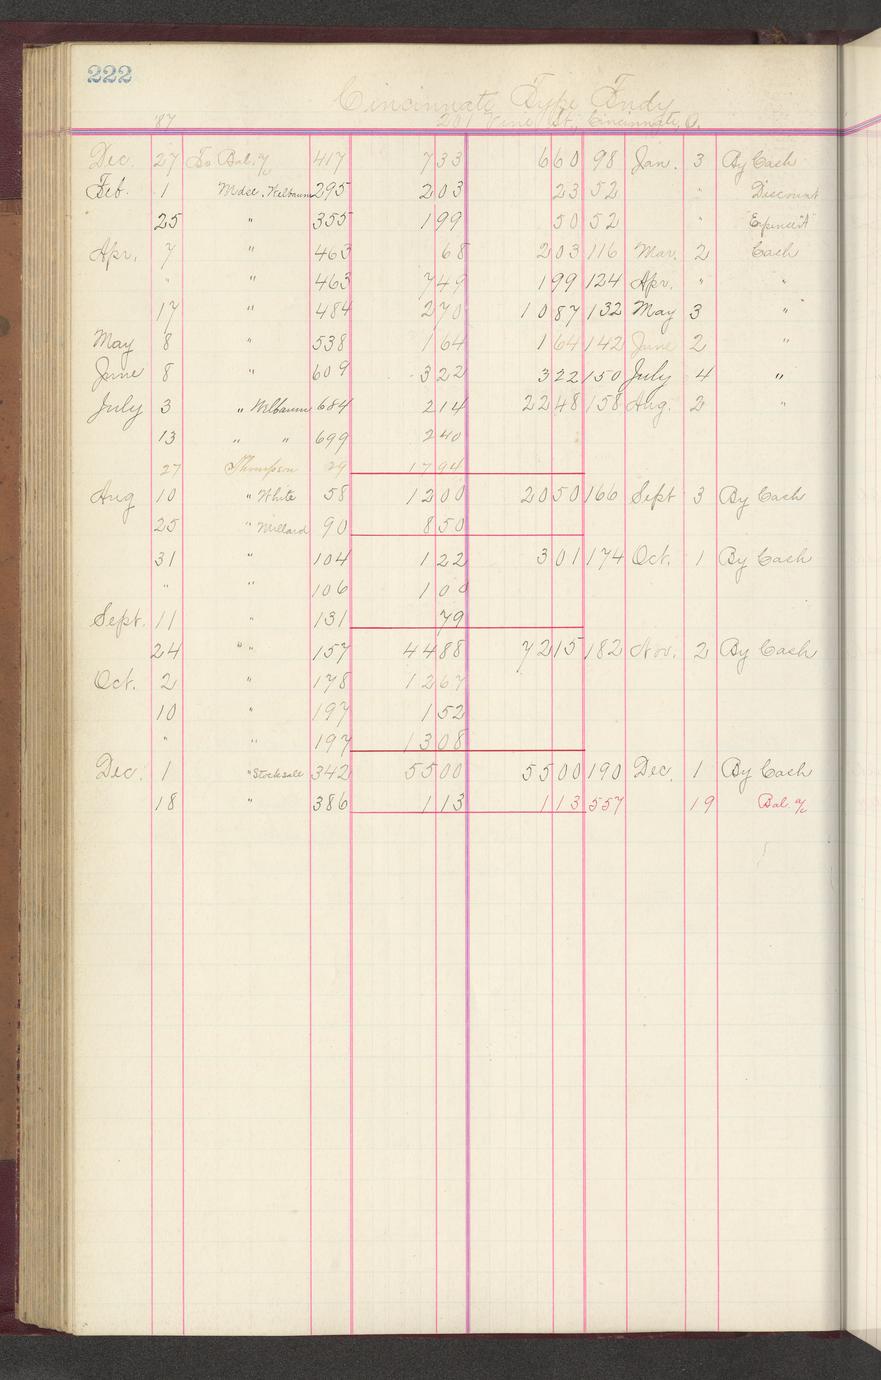 222
Cincinnati Type Fndy
'87 201 Vine St., Cincinnati, O.
Dec. 27 To Bal. a/c 417 7 33 6 60 98 Jan. 3 By Cash
Feb. 1 Mdse. Welbaum 295 2 03 23 52 " Discount
25 " 355 1 99 50 52 " "Expense A"
Apr. 7 " 463 68 2 03 116 Mar. 2 Cash
" " 463 7 49 1 99 124 Apr. " "
17 " 484 2 70 10 87 132 May 3 "
May 8 " 538 1 64 1 64 142 June 2 "
June 8 " 609 3 22 3 22 150 July 4 "
July 3 " Welbaum 684 2 14 22 48 158 Aug. 2 "
13 " " 699 2 40
27 Thompson 29 17 94
Aug 10 " White 58 12 00 20 50 166 Sept 3 By Cash
25 " Millard 90 8 50
31 " 104 1 22 3 01 174 Oct. 1 By Cash
" " 106 1 00
Sept. 11 " 131 79
24 " " 157 44 88 72 15 182 Nov. 2 By Cash
Oct. 2 " 178 12 67
10 " 197 1 52
" " 197 13 08
Dec. 1 " Stocksale 342 55 00 55 00 190 Dec. 1 By Cash
18 " 386 1 13 1 13 557 19 Bal. a/c